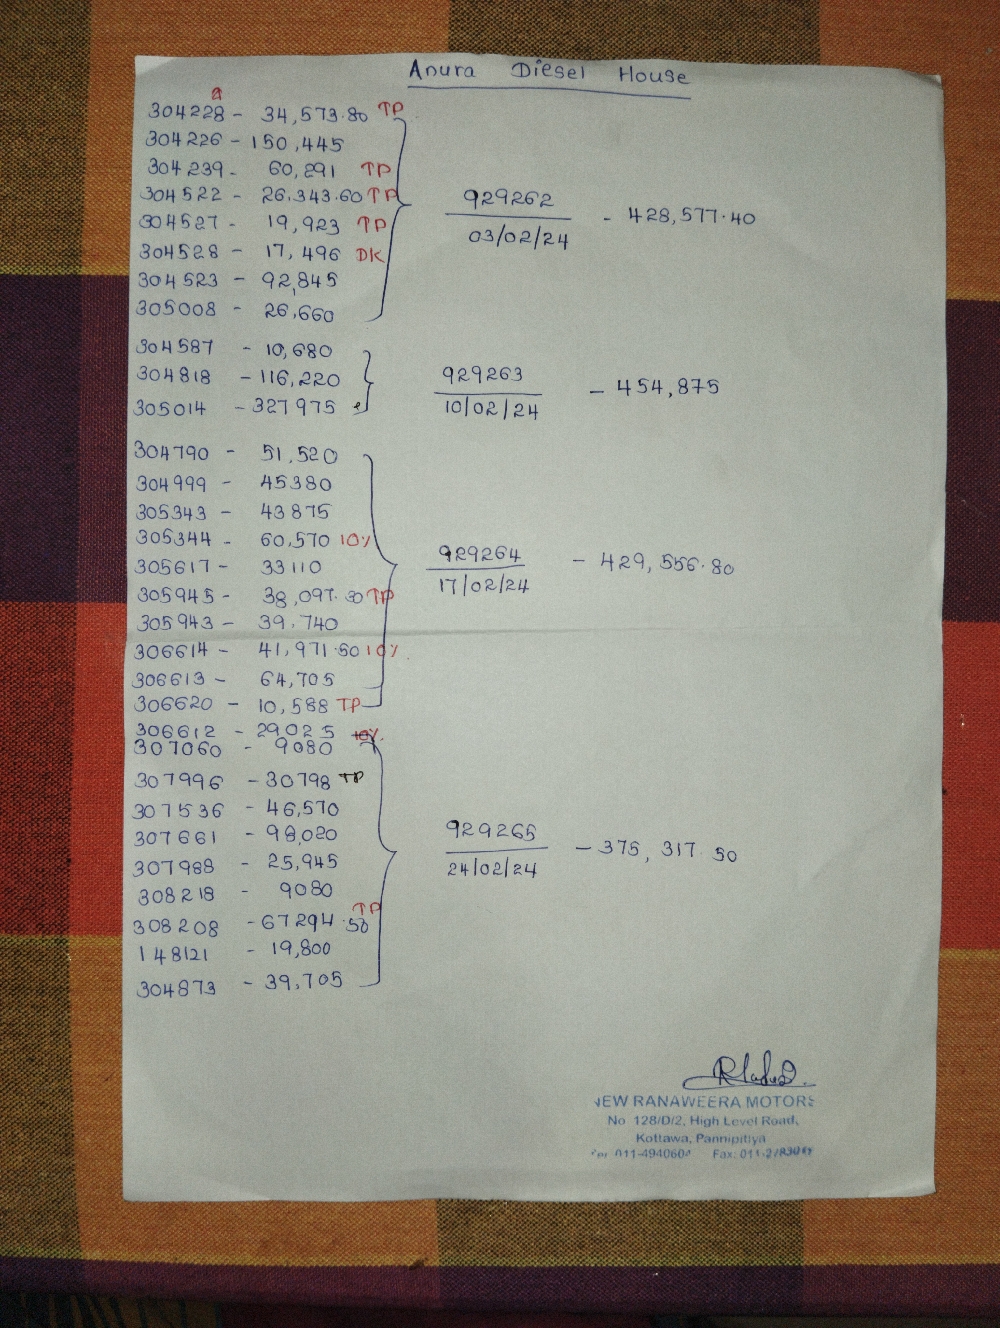 Anura Diesel House
304228 - 34,573.80 TP
304226 - 150,445
304239 - 60,291 TP
304522 - 26,343.60 TP
304527 - 19,923 TP
304528 - 17,496 DK
304523 - 92,845
305008 - 26,660
929262
03/02/24
- 428,577.40
304587 - 10,680
304818 - 116,220
305014 - 327975
929263
10/02/24
- 454,875
304790 - 51,520
304999 - 45380
305343 - 43875
305344 - 60,570 10%
305617 - 33110
305945 - 38,097.30 TP
305943 - 39,740
306614 - 41,971.50 10%
306613 - 64,705
306620 - 10,588 TP
929264
17/02/24
- 429,556.80
306612 - 29025 10%
307060 - 9080
307996 - 30798 TP
307536 - 46,570
307661 - 98,020
307988 - 25,945
308218 - 9080
308208 - 67294.50 TP
148121 - 19,800
304873 - 39,705
929265
24/02/24
- 375,317.50
NEW RANAWEERA MOTORS
No 128/D/2, High Level Road,
Kottawa, Pannipitiya
Fax: 011-2